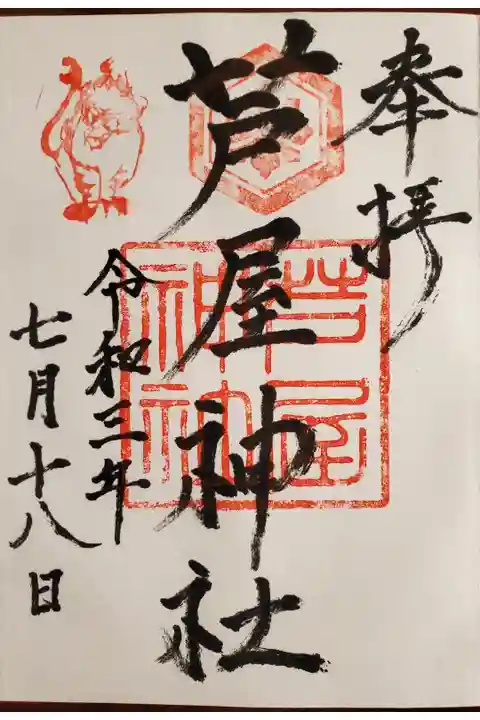 奉拝
芦屋神社
令和三年
七月十八日
芦屋
神社